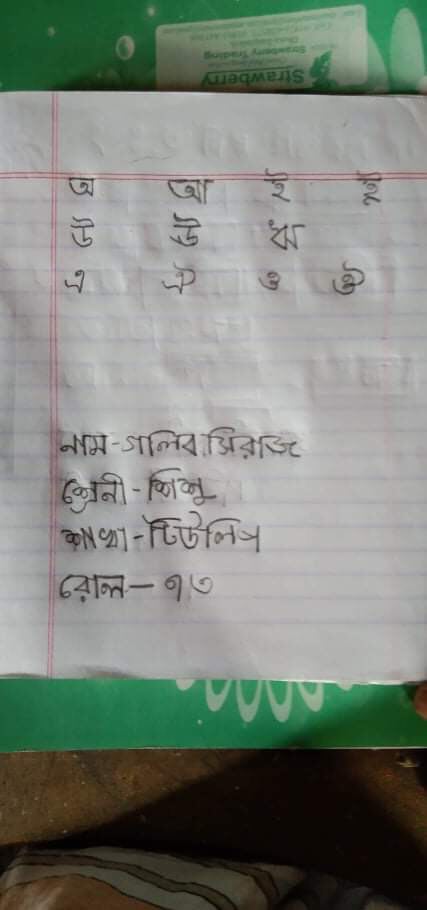 Strawberry
Strawberry Trading
অ আ ই ঈ
উ ঊ ঋ
এ ঐ ও ঔ
নাম-গালিব সিরাজ
শ্রেনী-শিশু
শাখা-টিউলিপ
রোল-১৩